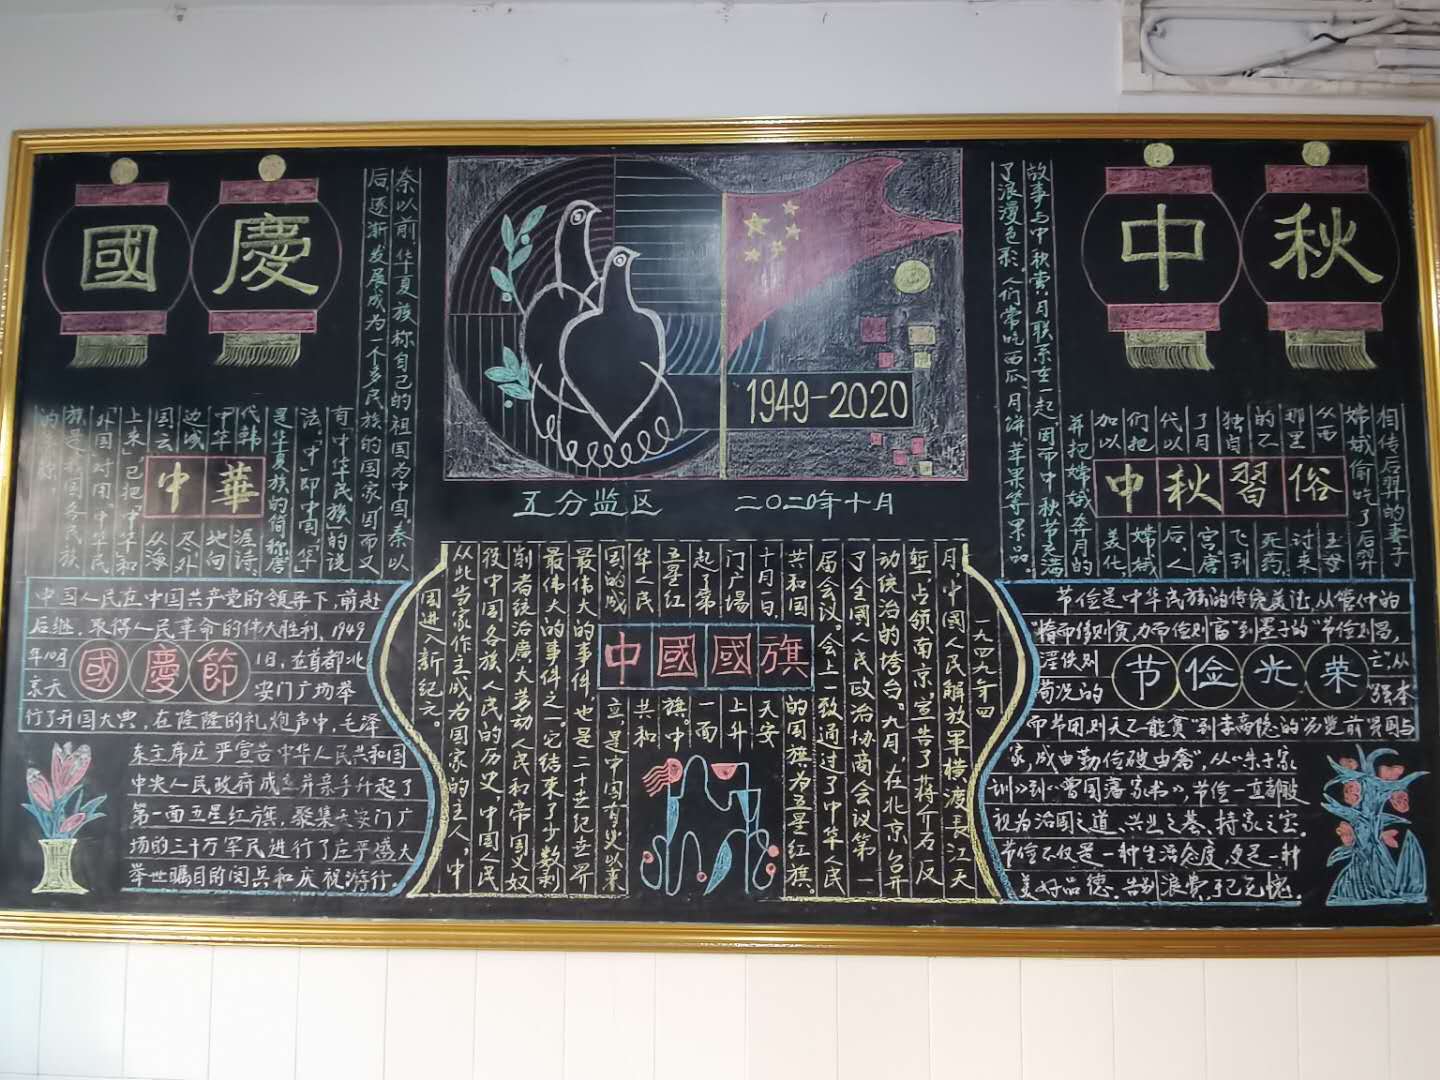 國慶
中秋
1949-2020
五分监区
二〇二〇年十月
秦以前,华夏族称自己的祖国为中国。秦以
后,逐渐发展成为一个多民族的国家,因而又
有"中华民族"的说
法。"中"即中国,"华"
是华夏族的简称。唐
代韩
偓诗:
中华
地向
边城
尽,外
国云
从海
上来,已把"中华"和
外国对用。中华民
族是我国各民族
的
中華
故事与中秋赏月联系在一起,因而中秋节充满
了浪漫色彩。人们常吃西瓜、月饼、苹果等果品。
相传后羿的妻子
嫦娥偷吃了后羿
从西
王母
那里
讨来
的不
死药,
独自
飞到
了月
宫。唐
代以
后,人
们把
嫦娥
加以
美化,
并把嫦娥奔月的
中秋習俗
中国人民在中国共产党的领导下,前赴
后继,取得人民革命的伟大胜利,1949
年10月
1日,在首都北
京天
安门广场举
行了开国大典,在隆隆的礼炮声中,毛泽
东主席庄严宣告中华人民共和国
中央人民政府成立并亲手升起了
第一面五星红旗,聚集天安门广
场的三十万军民进行了庄严盛大
举世瞩目的阅兵和庆祝游行。
國慶節
一九四九年四
月,中國人民解放軍橫渡長江天
塹,占领南京,宣告了蒋介石反
动统治的垮台。九月,在北京召开
了全國人民政治协商会议第一
届会议,会上一致通过了中华人民
共和国
的国旗为五星红旗。
十月一日,
天安
门广场
上升
起了第
一面
五星红
旗。中
华人民
共和
国的成
立,是中国有史以来
最伟大的事件,也是二十世纪世界
最伟大的事件之一。它结束了少数剥
削者统治廣大劳动人民和帝国义奴
役中国各族人民的历史,中国人民
从此当家作主,成为国家的主人,中
国进入新纪元。
中國國旗
节俭是中华民族的传统美德,从管仲的
"精而侈则贫,力而俭则富"到墨子的"节俭则昌,
淫佚则
亡"从
荀况的
"强本
而节用则天不能贫"到李商隐的"历览前贤国与
家,成由勤俭破由奢",从《朱子家
训》到《曾国藩家书》,节俭一直都被
视为治国之道、兴业之基、持家之宝。
节俭不仅是一种生活态度,更是一种
美好品德。告别浪费,
节俭光荣